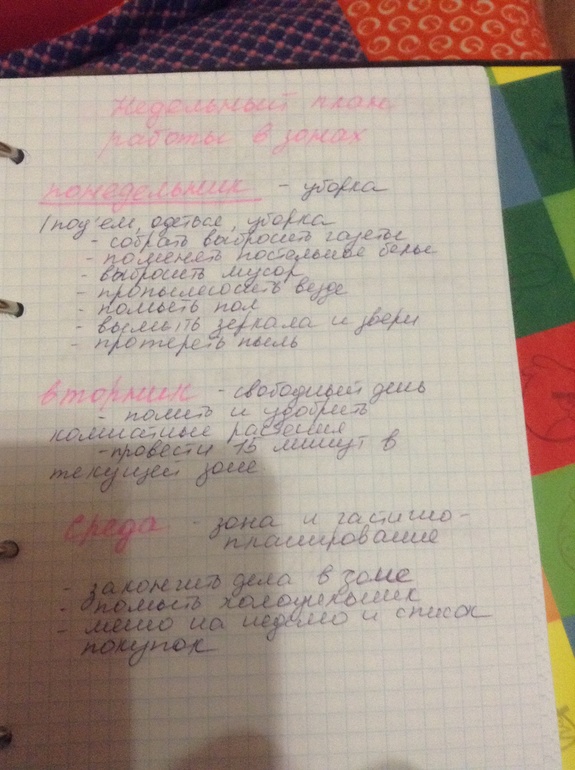 Недельный план
работы в зонах
понедельник - уборка
/под'ем, одеться, уборка
- собрать выбросить газеты
- поменять постельное белье
- выбросить мусор
- пропылесосить везде
- помыть пол
- вымыть зеркала и двери
- протереть пыль
вторник - свободный день
- полить и удобрить
комнатные растения
- провести 15 минут в
текущей зоне
среда - зона и частично-
планирование
- закончить дела в зоне
- помыть холодильник
- меню на неделю и список
покупок